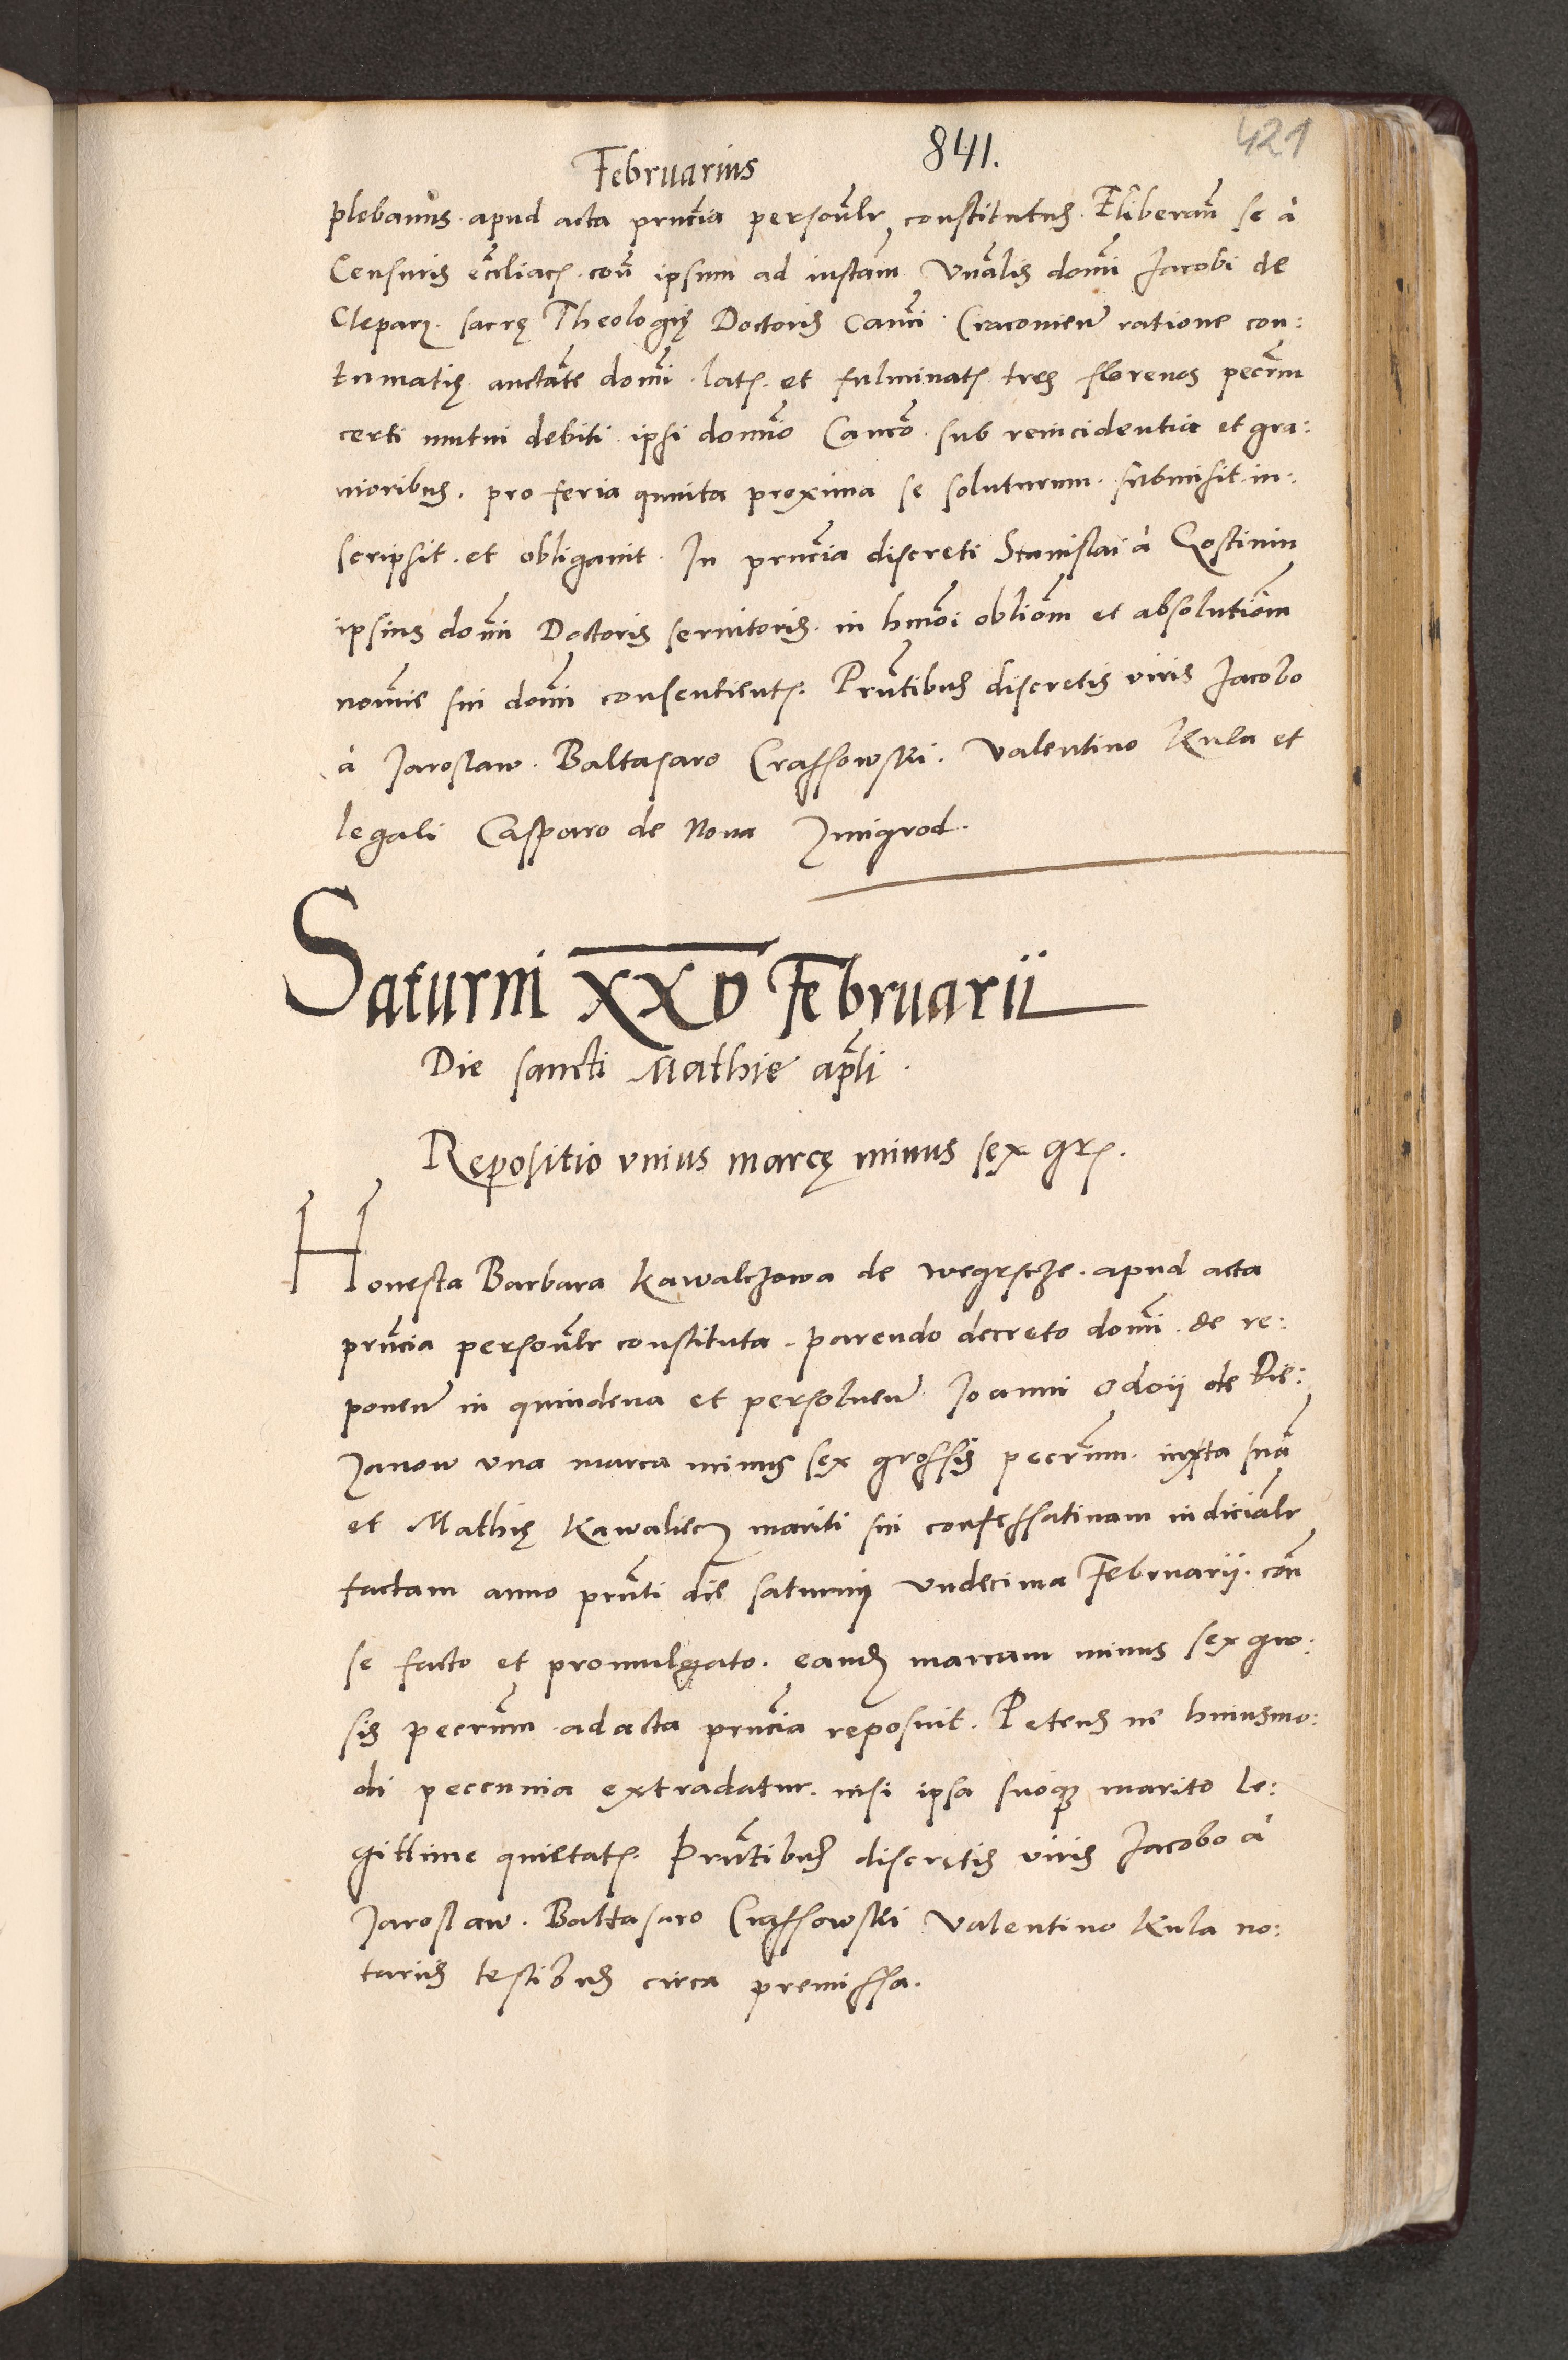 421
841.
Februarius
plebanus. apud acta prn̄cia persōnlr constitutus. Eliberan̄ se à
Censuris ec̄cliacꝭ. con̄ ipsum ad instam̄ Vn̄alis domī Jacobi de
Cleparꝫ. sacrę Theologię Doctoris Canci. Cracouień ratione con:
tumatię auctāte domī. latꝭ. et fulminatꝭ. tres florenos pecrm̄
certi mutui debiti. ipsi domīo Cancō. sub reincidentia et gra:
uioribus. pro feria quinta proxima se soluturum. submisit. in:
scripsit. et obligauit. In prn̄cia discreti Stanislai à Gostinin
ipsius domī Doctoris seruitoris. in hmōi obliōm et absolutiōm
nomīe sui domī consentientꝭ. Prn̄tibus discretis viris Jacobo
à Jaroslaw. Baltasaro Crassowski. Valentino Kula et
legali Casparo de Noua Zmigrod.
Saturni XXV Februarii
Die sancti Mathie apl̄i.
Repositio vnius marcę minus sex grꝭ.
Honesta Barbara Kawalczowa de Wegrscze. apud acta
prn̄cia persōnlr constituta. parendo decreto domī. de re:
poneń in quindena et persolueń Joanni Odoii de Die:
Zanow vna marca minus sex grossis pecrm̄. iuxta suā
et Mathię Kawaliecz mariti sui confessatinam iudiciālr
factam anno prn̄ti die saturnij vndecima Februarii. con̄
se facto et promulgato. eandꝫ marcam minus sex gro:
sis pecrm̄. ad acta prn̄cia reposuit. Petens ne huiusmo:
di peccunia extradatur. nisi ipsa suoqꝫ marito le:
gittime quietatꝭ. Prn̄tibus discretis viris Jacobo à
Jaroslaw. Baltasaro Crassowski Valentino Kula no:
tariis testibus circa premissa.